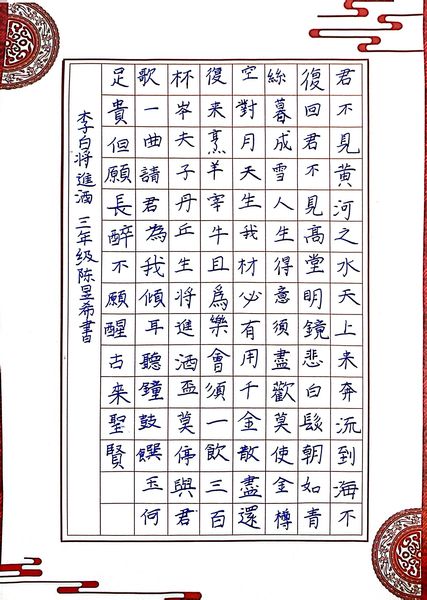 君不見黄河之水天上来奔流到海不
復回君不見高堂明鏡悲白髮朝如青
絲暮成雪人生得意須盡歡莫使金樽
空對月天生我材必有用千金散盡還
復来烹羊宰牛且爲樂會須一飲三百
杯岑夫子丹丘生将進酒盃莫停與君
歌一曲請君為我傾耳聽鐘鼓饌玉何
足貴但願長醉不願醒古来聖賢
李白将進酒 三年级陈昱希書